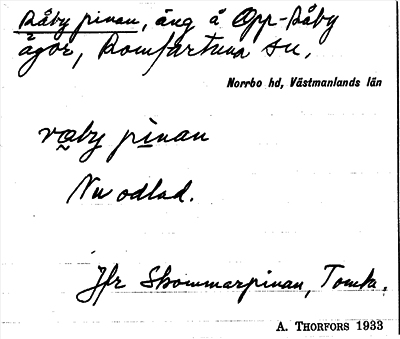 Råby pinan, äng å Opp-Råby
ägor, Romfartuna sn.
Norrbo hd, Västmanlands län
råby pinan
Nu odlad.
Jfr Skommarpinan, Tomta.
A. THORFORS 1933